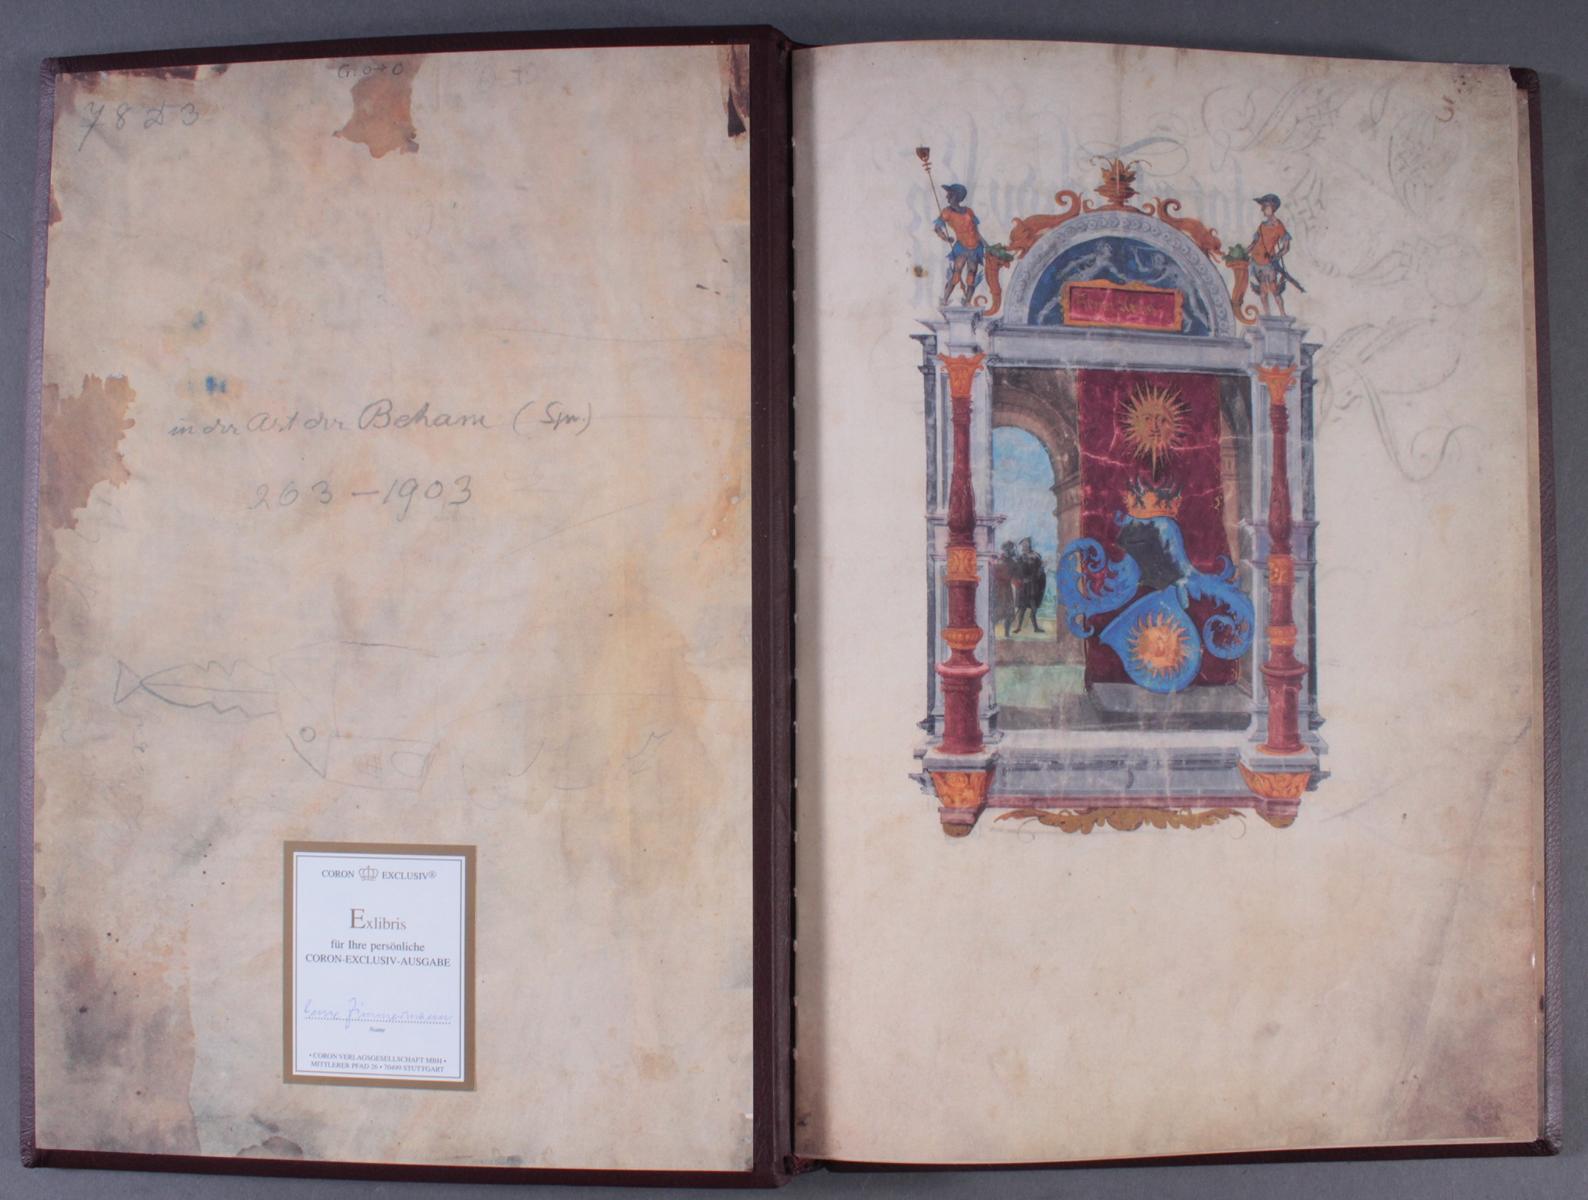 78 D 3
in der Art der Beham (Spr.)
263 – 1903
CORON EXCLUSIV®
Exlibris
für Ihre persönliche
CORON-EXCLUSIV-AUSGABE
Zimmermann
Name
• CORON VERLAGSGESELLSCHAFT MBH •
MITTLERER PFAD 26 • 70499 STUTTGART
3